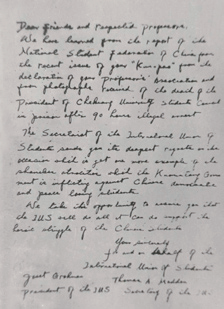 Dear friends and respected professors,
We have learned from the report of the
National Student Federation of China from
the recent issue of your "        " from the
declaration of your Professors' Association and
from photographs received of the death of the
President of Chekiang University Students Council
in prison after 90 hours illegal arrest.
The Secretariat of the International Union of
Students sends you its deepest regrets on this
occasion which is yet one more example of the
shameless atrocities which the Kuomintang Govern-
ment is inflicting against Chinese democratic
and peace loving students.
We take this opportunity to assure you that
the IUS will do all it can to support the
heroic struggle of the Chinese students
Yours sincerely
for and on behalf of the
International Union of Students
Thomas
President of the IUS Secretary of the